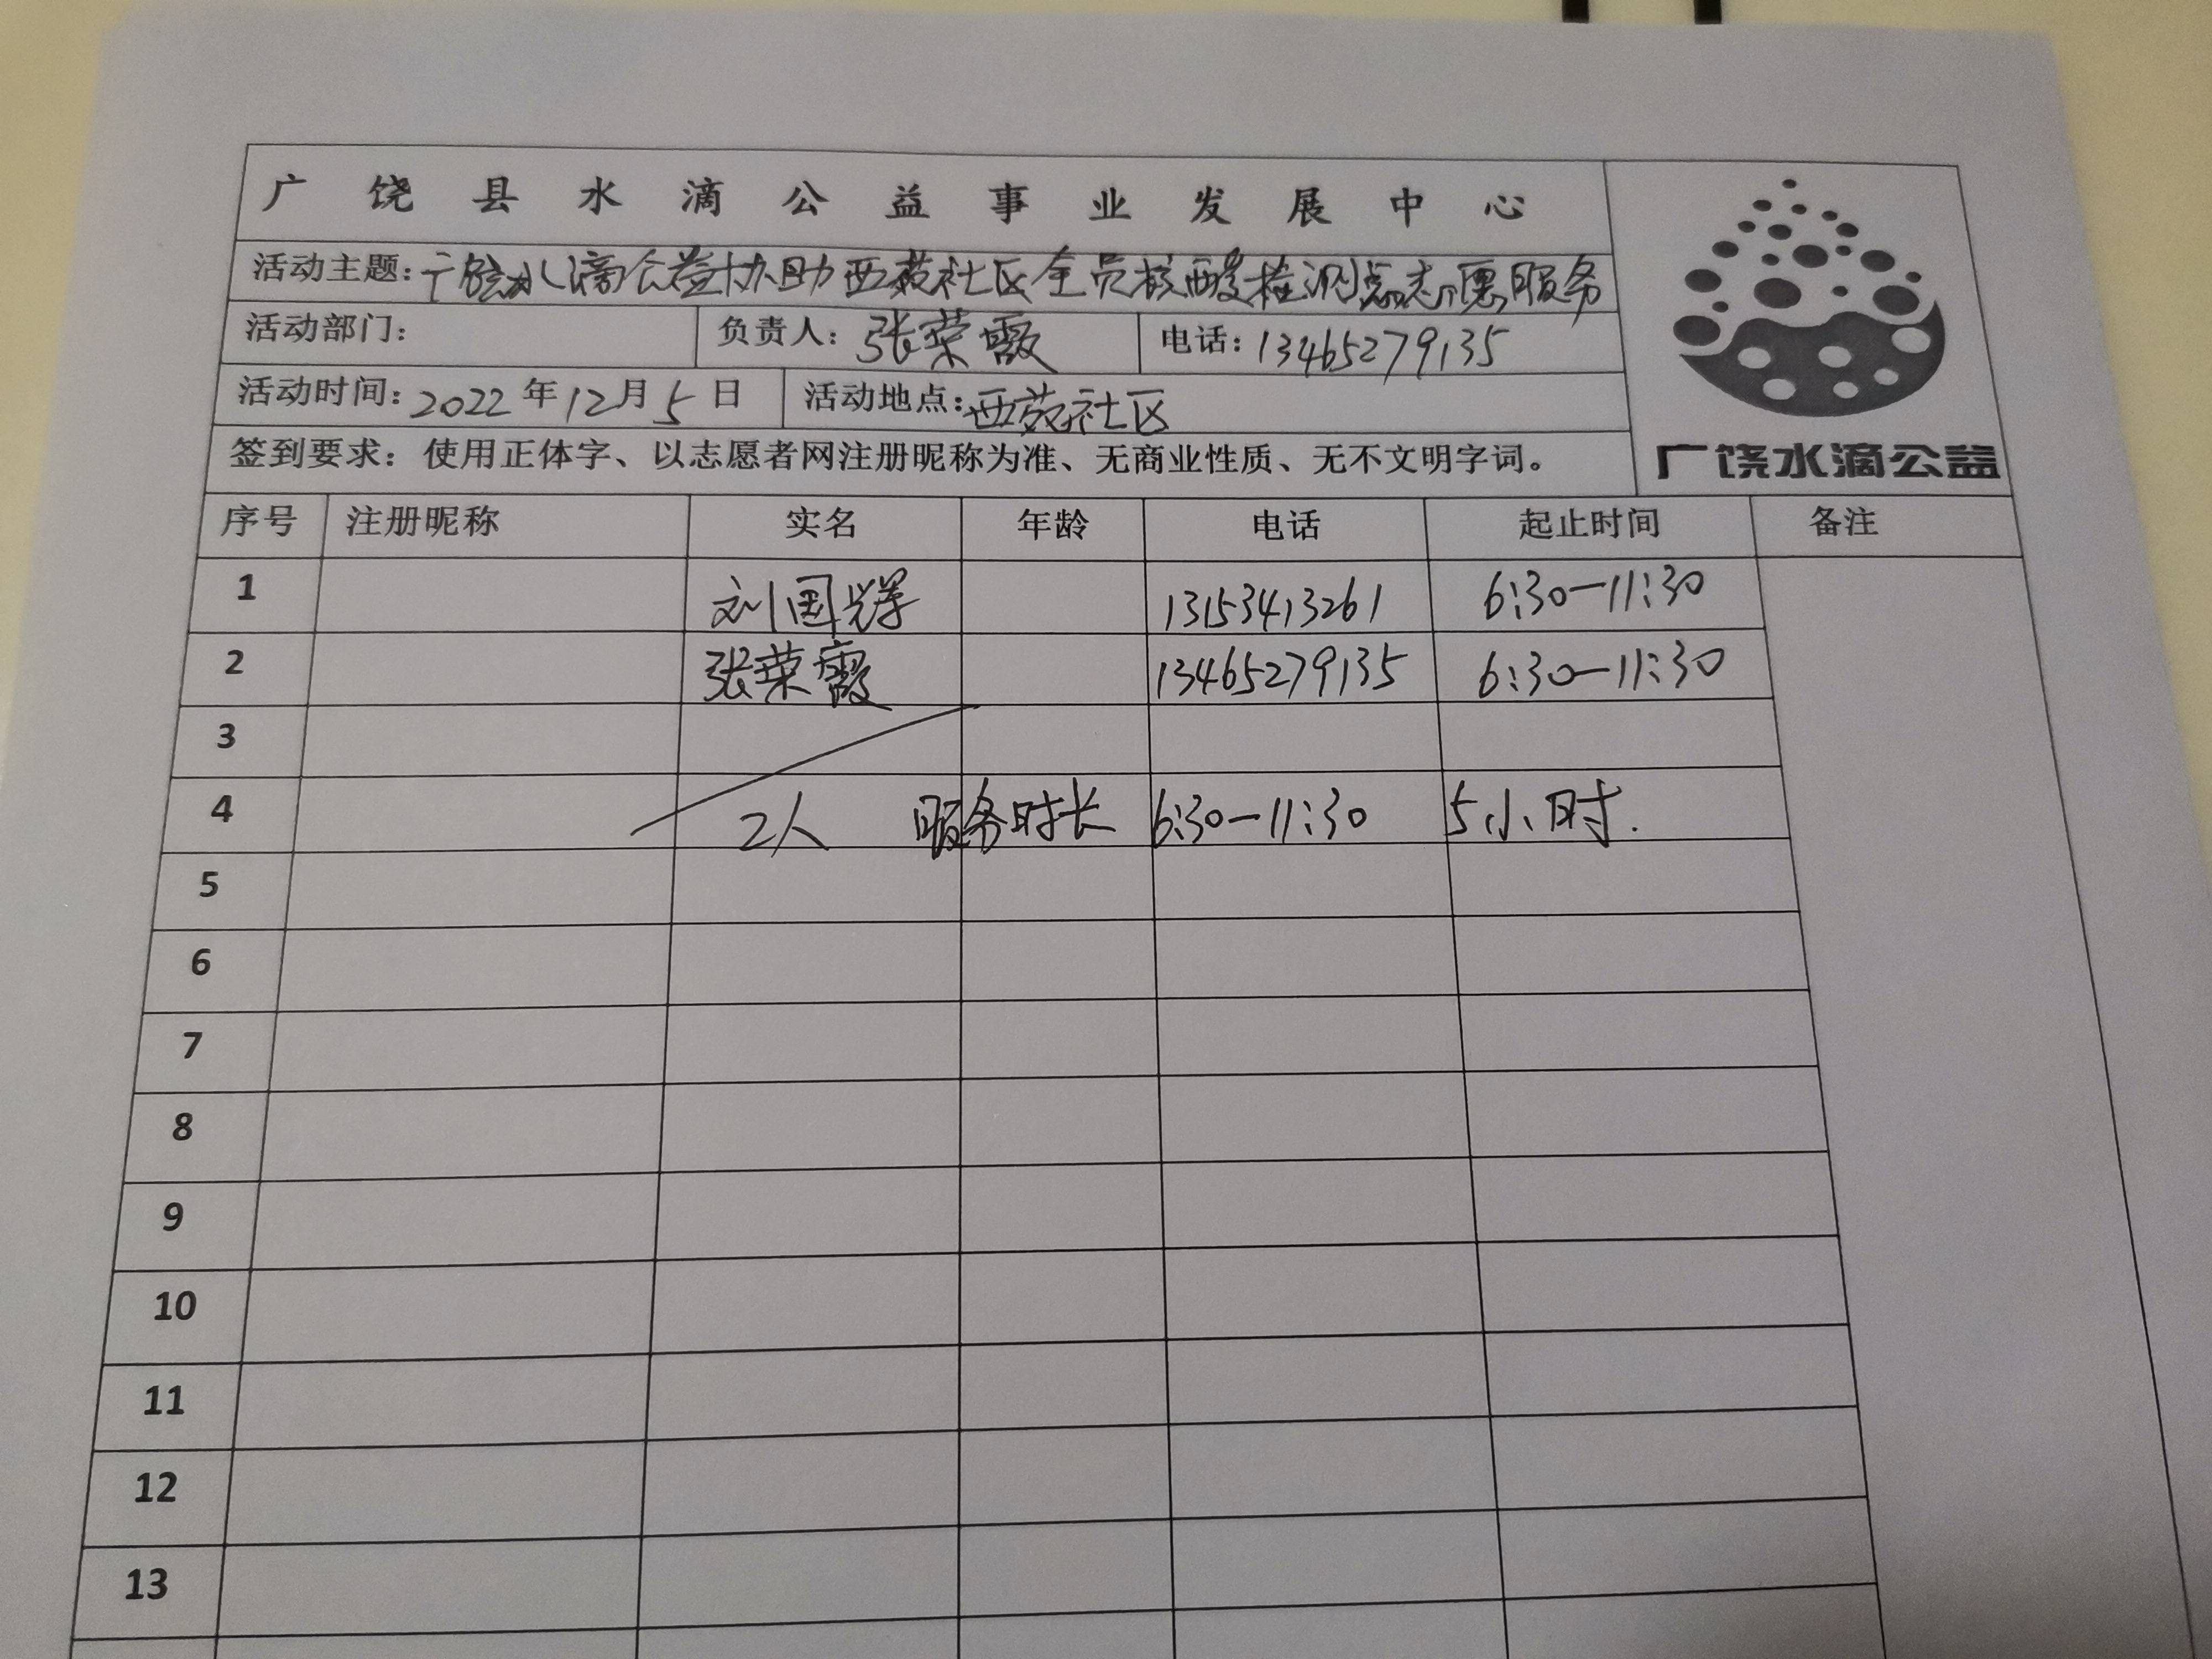 广饶县水滴公益事业发展中心
活动主题：广饶水滴公益协助西苑社区全员核酸检测点志愿服务
活动部门： 负责人：张荣霞 电话：13465279135
活动时间：2022年12月5日 活动地点：西苑社区
签到要求：使用正体字、以志愿者网注册昵称为准、无商业性质、无不文明字词。
广饶水滴公益
序号 注册昵称 实名 年龄 电话 起止时间 备注
1 刘国辉 13153413261 6:30—11:30
2 张荣霞 13465279135 6:30—11:30
3
4 2人 服务时长 6:30—11:30 5小时.
5
6
7
8
9
10
11
12
13